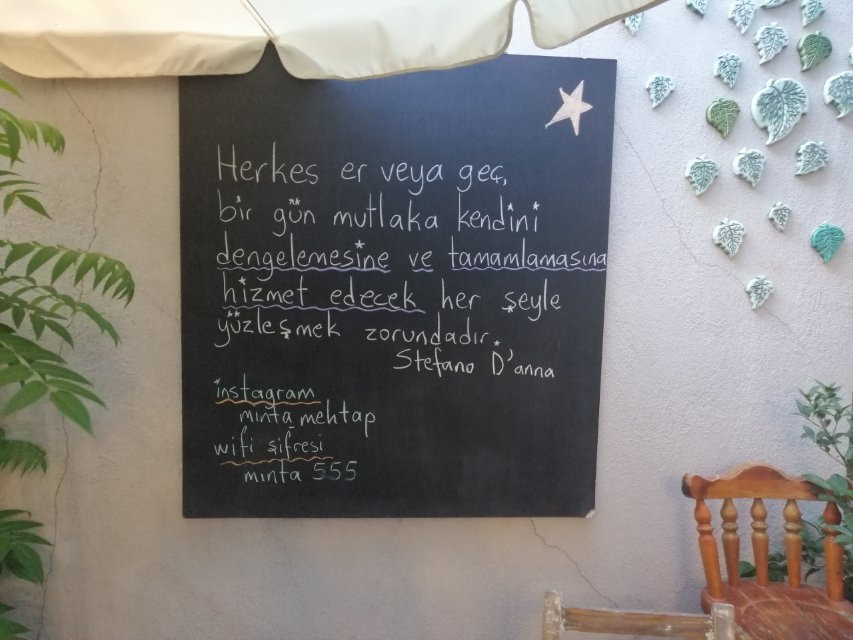 Herkes er veya geç,
bir gün mutlaka kendini
dengelemesine ve tamamlamasına
hizmet edecek her şeyle
yüzleşmek zorundadır.
Stefano D'anna
instagram
minta_mehtap
wifi şifresi
minta 555